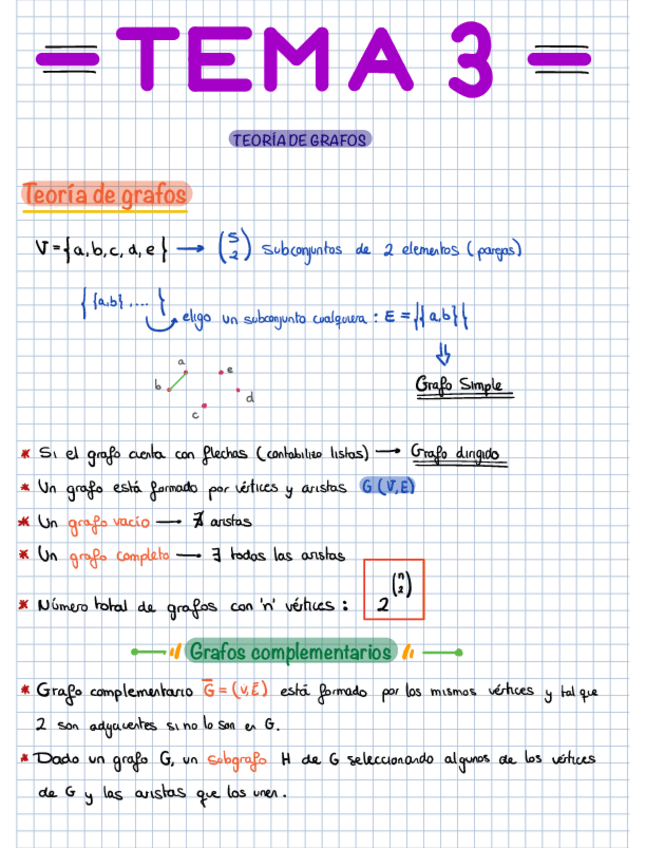 = TEMA 3 =
TEORÍA DE GRAFOS
Teoría de grafos
V = {a, b, c, d, e} → (5 2) subconjuntos de 2 elementos (parejas)
{ {a,b}, .... }
eligo un subconjunto cualquiera : E = {{a,b}}
⇓
Grafo Simple
a
b
c
d
e
* Si el grafo cuenta con flechas (contabilizo listas) → Grafo dirigido
* Un grafo está formado por vértices y aristas G (V,E)
* Un grafo vacío → ∄ aristas
* Un grafo completo → ∃ todas las aristas
* Número total de grafos con 'n' vértices : 2^(n 2)
Grafos complementarios
* Grafo complementario G̅ = (V,E̅) está formado por los mismos vértices y tal que
2 son adyacentes si no lo son en G.
* Dado un grafo G, un subgrafo H de G seleccionando algunos de los vértices
de G y las aristas que los unen.